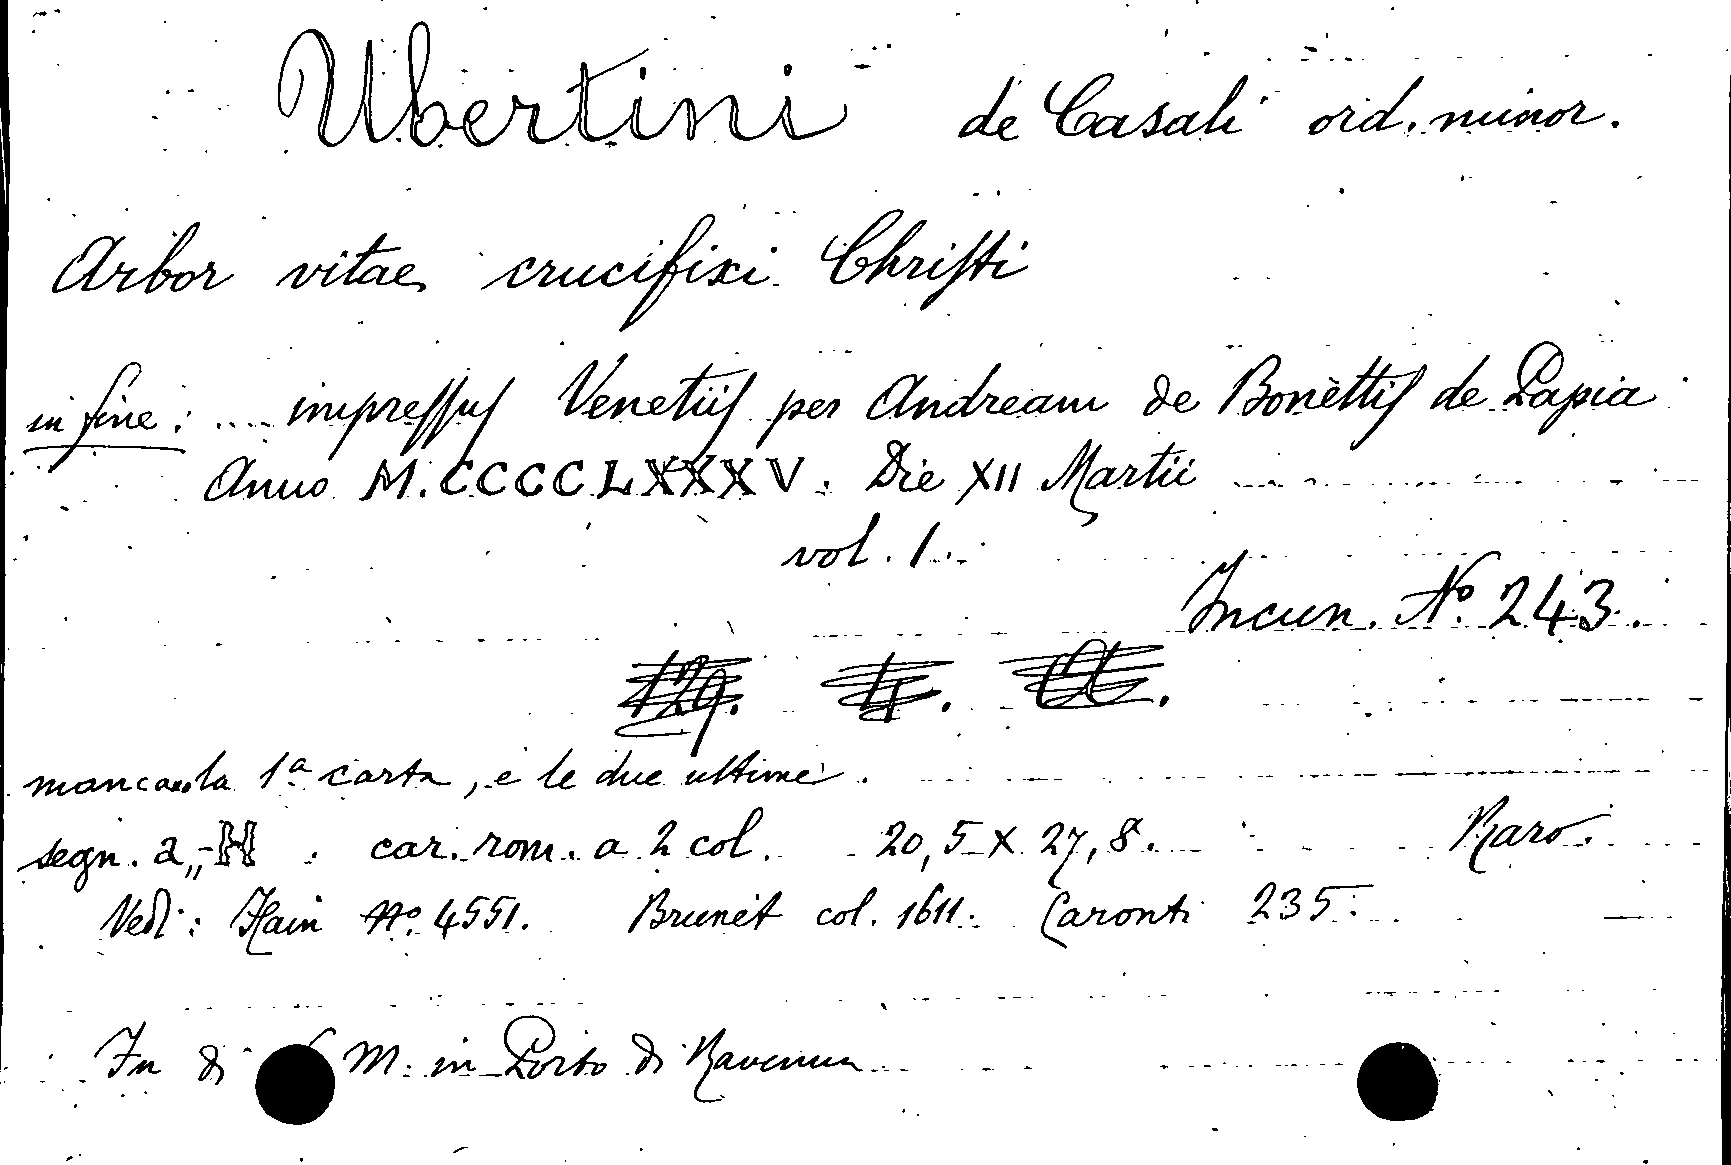 Ubertini de Casali ord. minor.
Arbor vitae crucifixi Chriſti
in fine: .... impreſſuſ Venetiiſ per Andream de Bonettiſ de Papia
Anno M.CCCCLXXXV. Die XII Martii
vol. 1.
Incun. Nº 243.
manca la 1ª carta, e le due ultime.
segn. a,,-H. car. rom. a 2 col. 20,5 x 27,8. Raro.
Vedi: Hain Nº 4551. Brunet col. 1611. Caronti 235.
Fu di M. in Porto di Ravenna